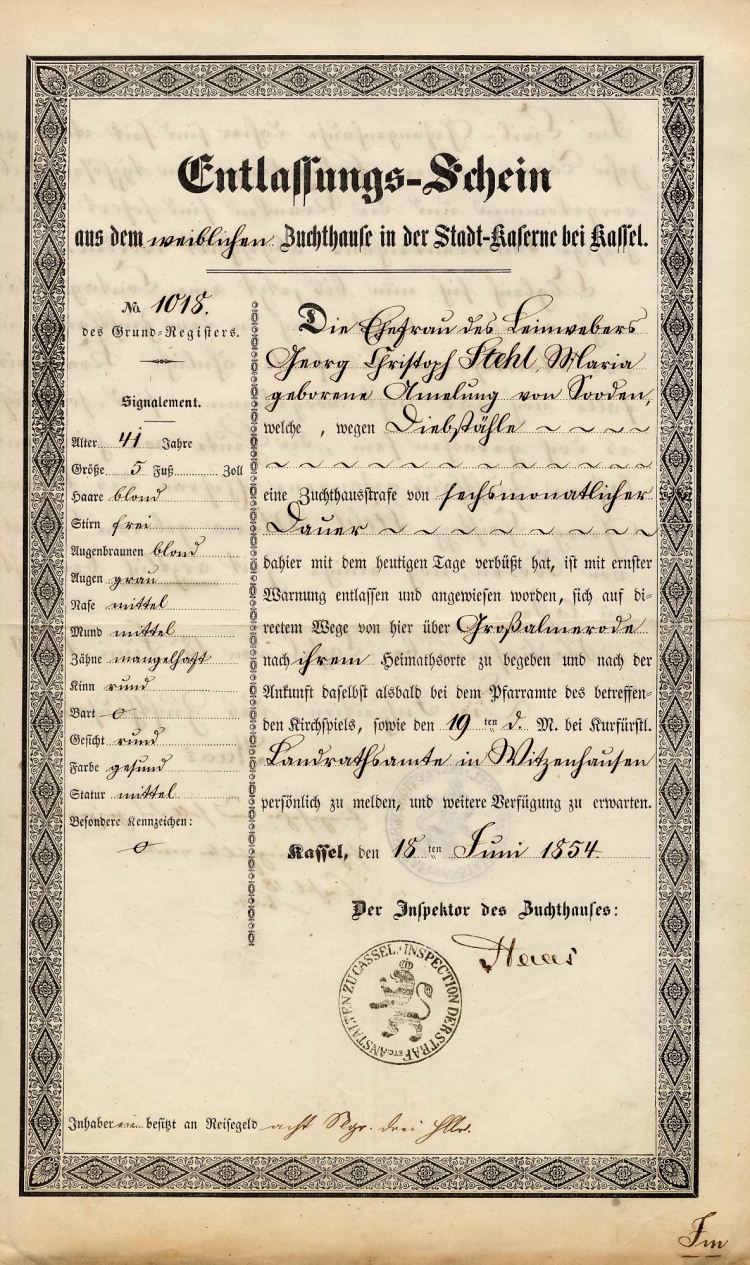 Entlassungs-Schein
aus dem weiblichen Zuchthause in der Stadt-Kaserne bei Kassel.
No. 1018.
des Grund-Registers.
Signalement.
Alter 41 Jahre
Größe 5 Fuß Zoll
Haare blond
Stirn frei
Augenbraunen blond
Augen grau
Nase mittel
Mund mittel
Zähne mangelhaft
Kinn rund
Bart 0
Gesicht rund
Farbe gesund
Statur mittel
Besondere Kennzeichen:
0
Die Ehefrau des Leinwebers
Georg Christoph Stehl, Maria
geborene Amelung von Sooden,
welche, wegen Diebstähle ~ ~ ~ ~
~ ~ ~ ~ ~ ~ ~ ~ ~ ~ ~ ~
eine Zuchthausstrafe von sechsmonatlicher
Dauer ~ ~ ~ ~ ~ ~ ~ ~
dahier mit dem heutigen Tage verbüßt hat, ist mit ernster
Warnung entlassen und angewiesen worden, sich auf di-
rectem Wege von hier über Großalmerode
nach ihrem Heimathsorte zu begeben und nach der
Ankunft daselbst alsbald bei dem Pfarramte des betreffen-
den Kirchspiels, sowie den 19 ten d. M. bei Kurfürstl.
Landrathsamte in Witzenhausen
persönlich zu melden, und weitere Verfügung zu erwarten.
Kassel, den 18 ten Juni 1854.
Der Inspektor des Zuchthauses:
INSPECTION DER STRAF ETC ANSTALTEN ZU CASSEL.
Inhaberin besitzt an Reisegeld acht Sgr. drei Hllr.